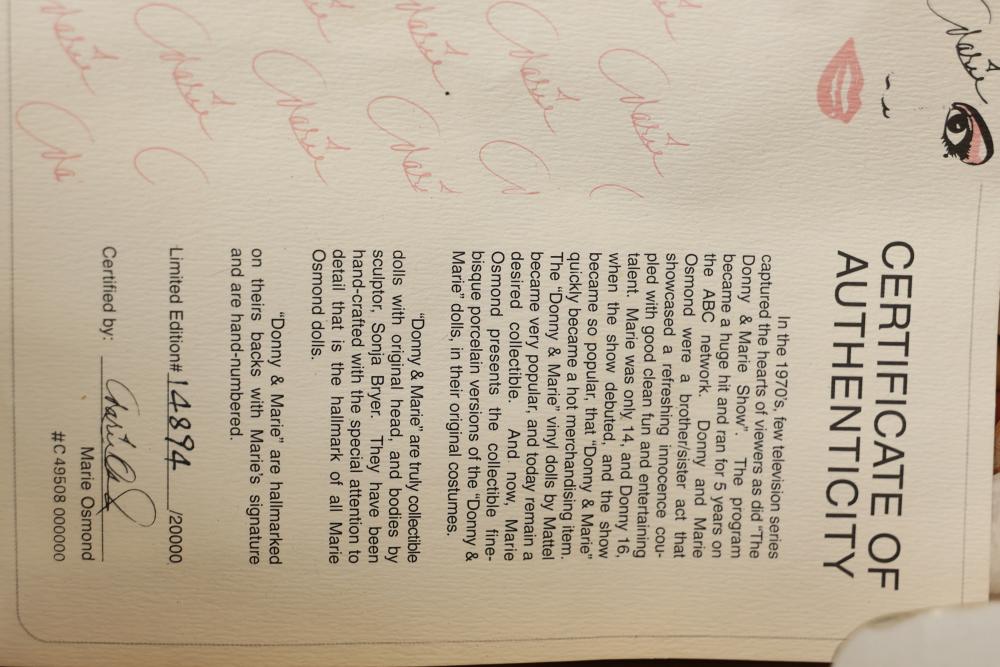 Marie
CERTIFICATE OF
AUTHENTICITY
In the 1970's, few television series
captured the hearts of viewers as did "The
Donny & Marie Show". The program
became a huge hit and ran for 5 years on
the ABC network. Donny and Marie
Osmond were a brother/sister act that
showcased a refreshing innocence cou-
pled with good clean fun and entertaining
talent. Marie was only 14, and Donny 16,
when the show debuted, and the show
became so popular, that "Donny & Marie"
quickly became a hot merchandising item.
The "Donny & Marie" vinyl dolls by Mattel
became very popular, and today remain a
desired collectible. And now, Marie
Osmond presents the collectible fine-
bisque porcelain versions of the "Donny &
Marie" dolls, in their original costumes.
"Donny & Marie" are truly collectible
dolls with original head, and bodies by
sculptor, Sonja Bryer. They have been
hand-crafted with the special attention to
detail that is the hallmark of all Marie
Osmond dolls.
"Donny & Marie" are hallmarked
on theirs backs with Marie's signature
and are hand-numbered.
Limited Edition# 14894 /20000
Certified by:
Marie Osmond
#C 49508 00000
Marie
Marie
Marie
Marie
Marie
Marie
Marie